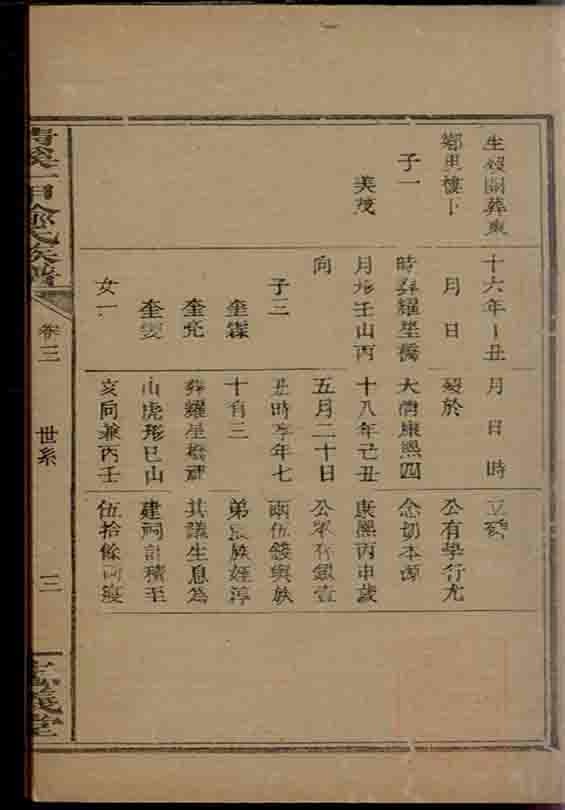 生歿闕葬東
樓下
子一
美茂
十六年丁丑
月 日
時葬耀星橋
月形壬山丙
向
子三
奎霖
奎光
奎雯
女一
月 日 時
歿於
大清康熙四
十八年己丑
五月二十日
丑時享年七
十有三
葬耀星橋
山虎形巳山
亥向兼丙壬
公有學行尤
念切本源
康熙丙申歲
公眾存銀壹
兩伍錢與族
弟 族姪淳
其議生息為
建祠計積至
伍拾餘両寢
氏族譜
卷三
世系
三
義堂